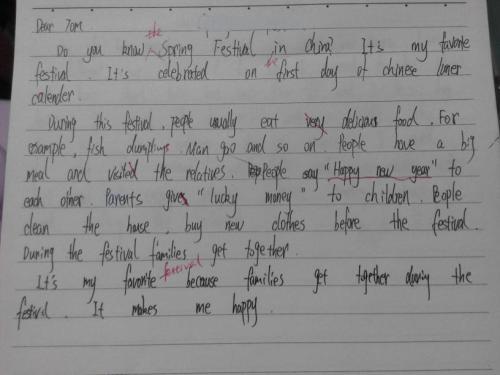 Dear Tom
the
Do you know ^ Spring Festival in China? It's my favorite
festival. It's celebrated on the first day of chinese luner
calender.
During this festival, people usually eat very delicious food. For
example, fish dumplings. Man goo and so on. People have a big
meal and visited the relatives. People say "Happy new year" to
each other. Parents gives "lucky money" to children. Bople
clean the house, buy new clothes before the festival.
During the festival families get together.
It's my favorite festival because families get together during the
festival. It makes me happy.